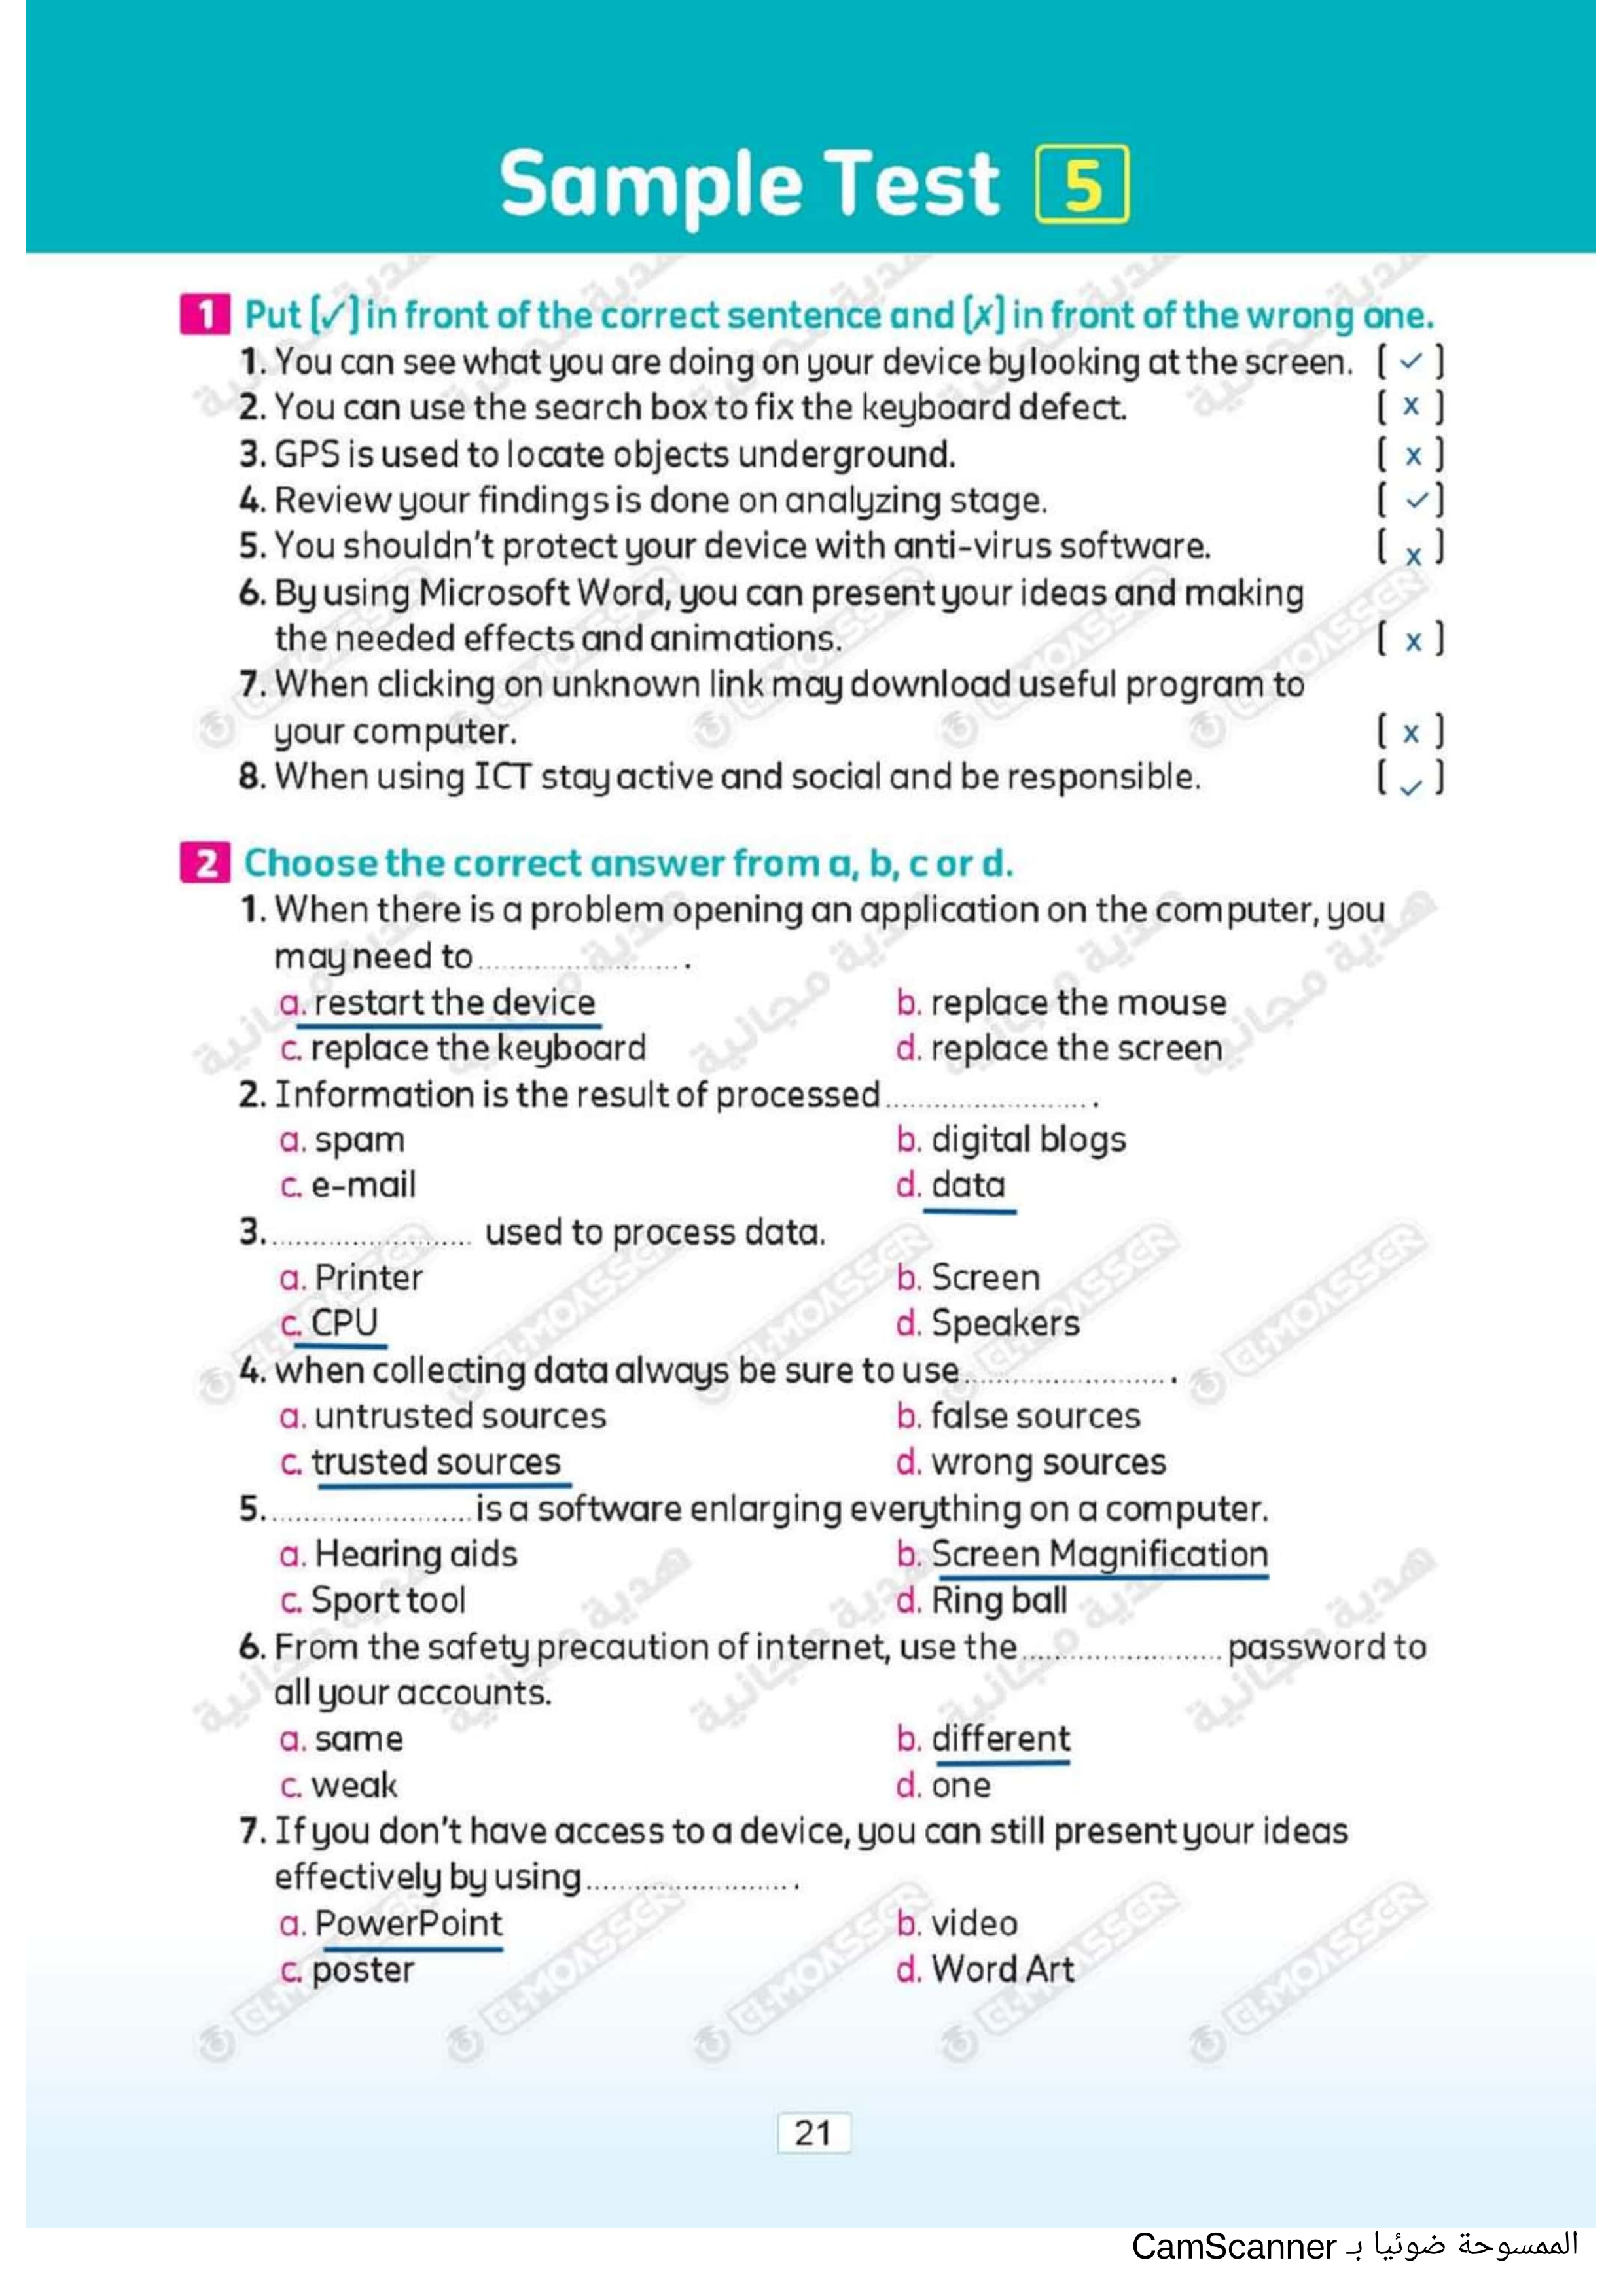 Sample Test 5
1 Put [✓] in front of the correct sentence and [x] in front of the wrong one.
1. You can see what you are doing on your device by looking at the screen. [ ✓ ]
2. You can use the search box to fix the keyboard defect. [ x ]
3. GPS is used to locate objects underground. [ x ]
4. Review your findings is done on analyzing stage. [ ✓ ]
5. You shouldn't protect your device with anti-virus software. [ x ]
6. By using Microsoft Word, you can present your ideas and making
the needed effects and animations. [ x ]
7. When clicking on unknown link may download useful program to
your computer. [ x ]
8. When using ICT stay active and social and be responsible. [ ✓ ]
2 Choose the correct answer from a, b, c or d.
1. When there is a problem opening an application on the computer, you
may need to ........................ .
a. restart the device b. replace the mouse
c. replace the keyboard d. replace the screen
2. Information is the result of processed ........................ .
a. spam b. digital blogs
c. e-mail d. data
3. ........................ used to process data.
a. Printer b. Screen
c. CPU d. Speakers
4. when collecting data always be sure to use ........................ .
a. untrusted sources b. false sources
c. trusted sources d. wrong sources
5. ........................ is a software enlarging everything on a computer.
a. Hearing aids b. Screen Magnification
c. Sport tool d. Ring ball
6. From the safety precaution of internet, use the ........................ password to
all your accounts.
a. same b. different
c. weak d. one
7. If you don't have access to a device, you can still present your ideas
effectively by using ........................ .
a. PowerPoint b. video
c. poster d. Word Art
هدية مجانية
ELMOASSER
21
الممسوحة ضوئيا بـ CamScanner